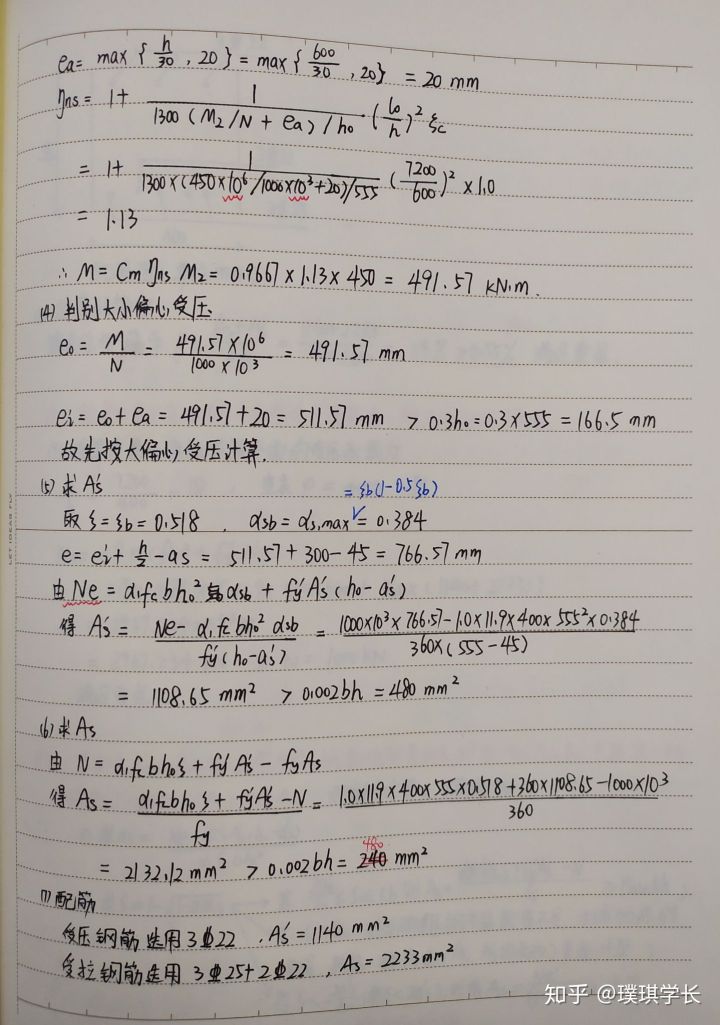 ea = max { h/30 , 20 } = max { 600/30 , 20 } = 20 mm
ηns = 1 + 1/(1300 (M₂/N + ea) / h₀) · (l₀/h)² ξc
= 1 + 1/(1300×(450×10⁶/1000×10³+20)/555) (7200/600)² × 1.0
= 1.13
∴ M = Cm ηns M₂ = 0.9667 × 1.13 × 450 = 491.57 kN·m.
(4) 判别大小偏心受压.
e₀ = M/N = 491.57×10⁶/1000×10³ = 491.57 mm
ei = e₀ + ea = 491.57 + 20 = 511.57 mm > 0.3h₀ = 0.3×555 = 166.5 mm
故先按大偏心受压计算.
(5) 求 As'
= ξb(1-0.5ξb)
取 ξ = ξb = 0.518 . αsb = αs,max = 0.384
e = ei + h/2 - as = 511.57 + 300 - 45 = 766.57 mm
由 Ne = α₁fcbh₀² αsb + fy'As'(h₀-as')
得 As' = (Ne - α₁fcbh₀² αsb)/(fy'(h₀-as')) = (1000×10³×766.57-1.0×11.9×400×555²×0.384)/(360×(555-45))
= 1108.65 mm² > 0.002bh = 480 mm²
(6) 求 As
由 N = α₁fcbh₀ξ + fy'As' - fyAs
得 As = (α₁fcbh₀ξ + fy'As' - N)/fy = (1.0×11.9×400×555×0.518+360×1108.65-1000×10³)/360
480
= 2132.12 mm² > 0.002bh = 240 mm²
(7) 配筋
受压钢筋选用 3⏀22 . As' = 1140 mm²
受拉钢筋选用 3⏀25+2⏀22 , As = 2233mm²
LET IDEAS FLY
知乎 @璞琪学长